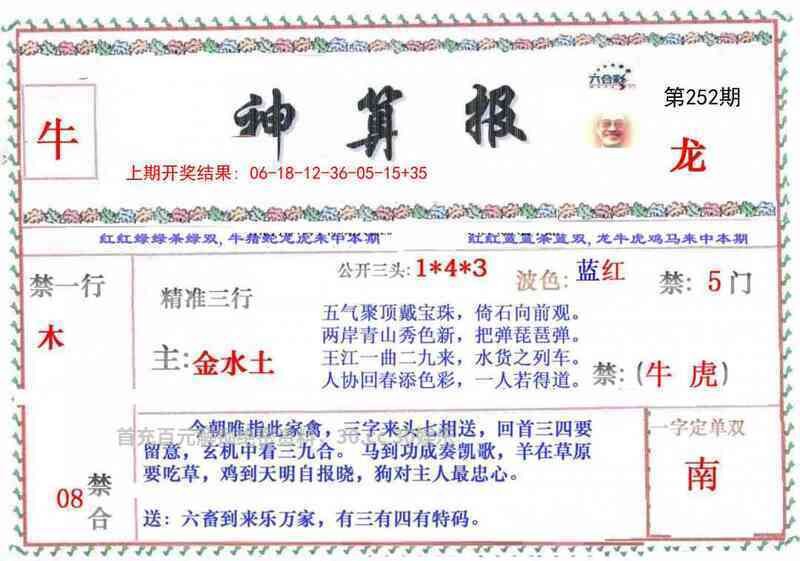 六合彩
第252期
牛
神算报
龙
上期开奖结果：06-18-12-36-05-15+35
红红绿绿杀绿双,牛猪蛇龙虎来中本期
红红蓝蓝杀蓝双,龙牛虎鸡马来中本期
禁一行
木
精准三行
主:金水土
公开三头:1*4*3
波色:蓝红
禁:5门
五气聚顶戴宝珠，倚石向前观。
两岸青山秀色新，把弹琵琶弹。
王江一曲二九来，水货之列车。
人协回春添色彩，一人若得道。
禁:(牛 虎)
08
禁
合
今朝唯指此家禽，三字来头七相送，回首三四要
留意，玄机中看三九合。 马到功成奏凯歌，羊在草原
要吃草，鸡到天明自报晓，狗对主人最忠心。
送：六畜到来乐万家，有三有四有特码。
一字定单双
南